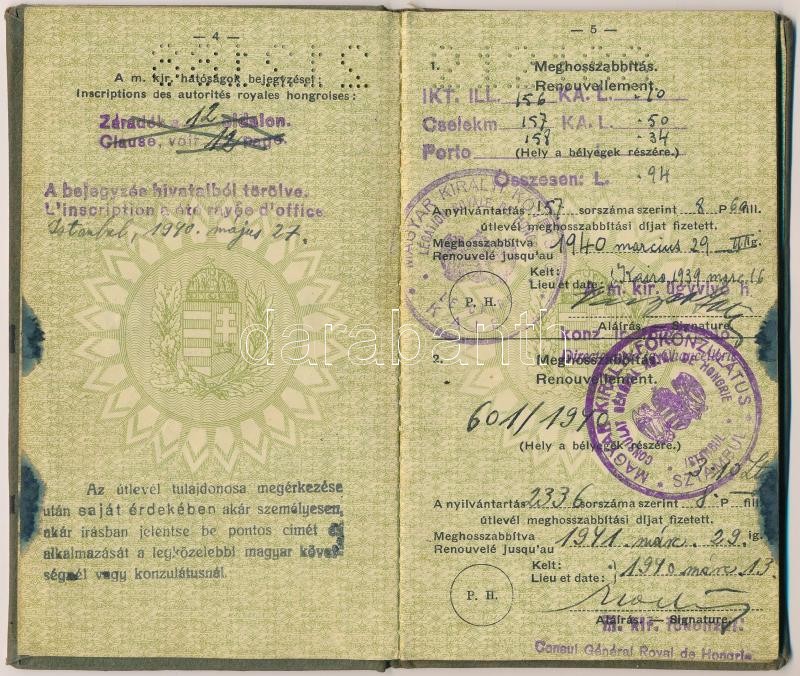 — 4 —
A m. kir. hatóságok bejegyzései:
Inscriptions des autorités royales hongroises:
Záradék a 12 oldalon.
Clause, voir 12 page.
A bejegyzés hivatalból törölve.
L'inscription a été rayée d'office
Istanbul, 1940. május 27.
Az útlevél tulajdonosa megérkezése
után saját érdekében akár személyesen,
akár irásban jelentse be pontos cimét és
alkalmazását a legközelebbi magyar követ-
ségnél vagy konzulátusnál.
— 5 —
1. Meghosszabbítás.
Renouvellement.
IKT. ILL. 156 KA. L. -.10
Cselekm 157 KA. L. -.50
Porto 158 -.34
(Hely a bélyegek részére.)
Összesen: L. -.94
A nyilvántartás 157 sorszáma szerint 8 P 60 fill.
útlevél meghosszabbítási díjat fizetett.
Meghosszabbítva 1940 marcius 29 ig.
Renouvelé jusqu'au
Kelt: Kairo 1939 marc 16
Lieu et date:
A m. kir. ügyvivő h.
P. H.
Aláírás. Signature.
MAGYAR KIRÁLYI KÖVETSÉG
LÉGATION ROYALE DE HONGRIE
2. Meghosszabbítás.
Renouvellement.
601/1940
(Hely a bélyegek részére.)
MAGYAR KIRÁLYI FŐKONZULÁTUS
CONSULAT GÉNÉRAL ROYAL DE HONGRIE
ISTANBUL
A nyilvántartás 2336 sorszáma szerint 8.- fill.
útlevél meghosszabbítási díjat fizetett.
Meghosszabbítva 1941. márc. 29. ig.
Renouvelé jusqu'au
Kelt: 1940 márc. 13.
Lieu et date:
P. H.
Aláírás. — Signature.
m. kir. főkonzul:
Consul Général Royal de Hongrie
darabanth